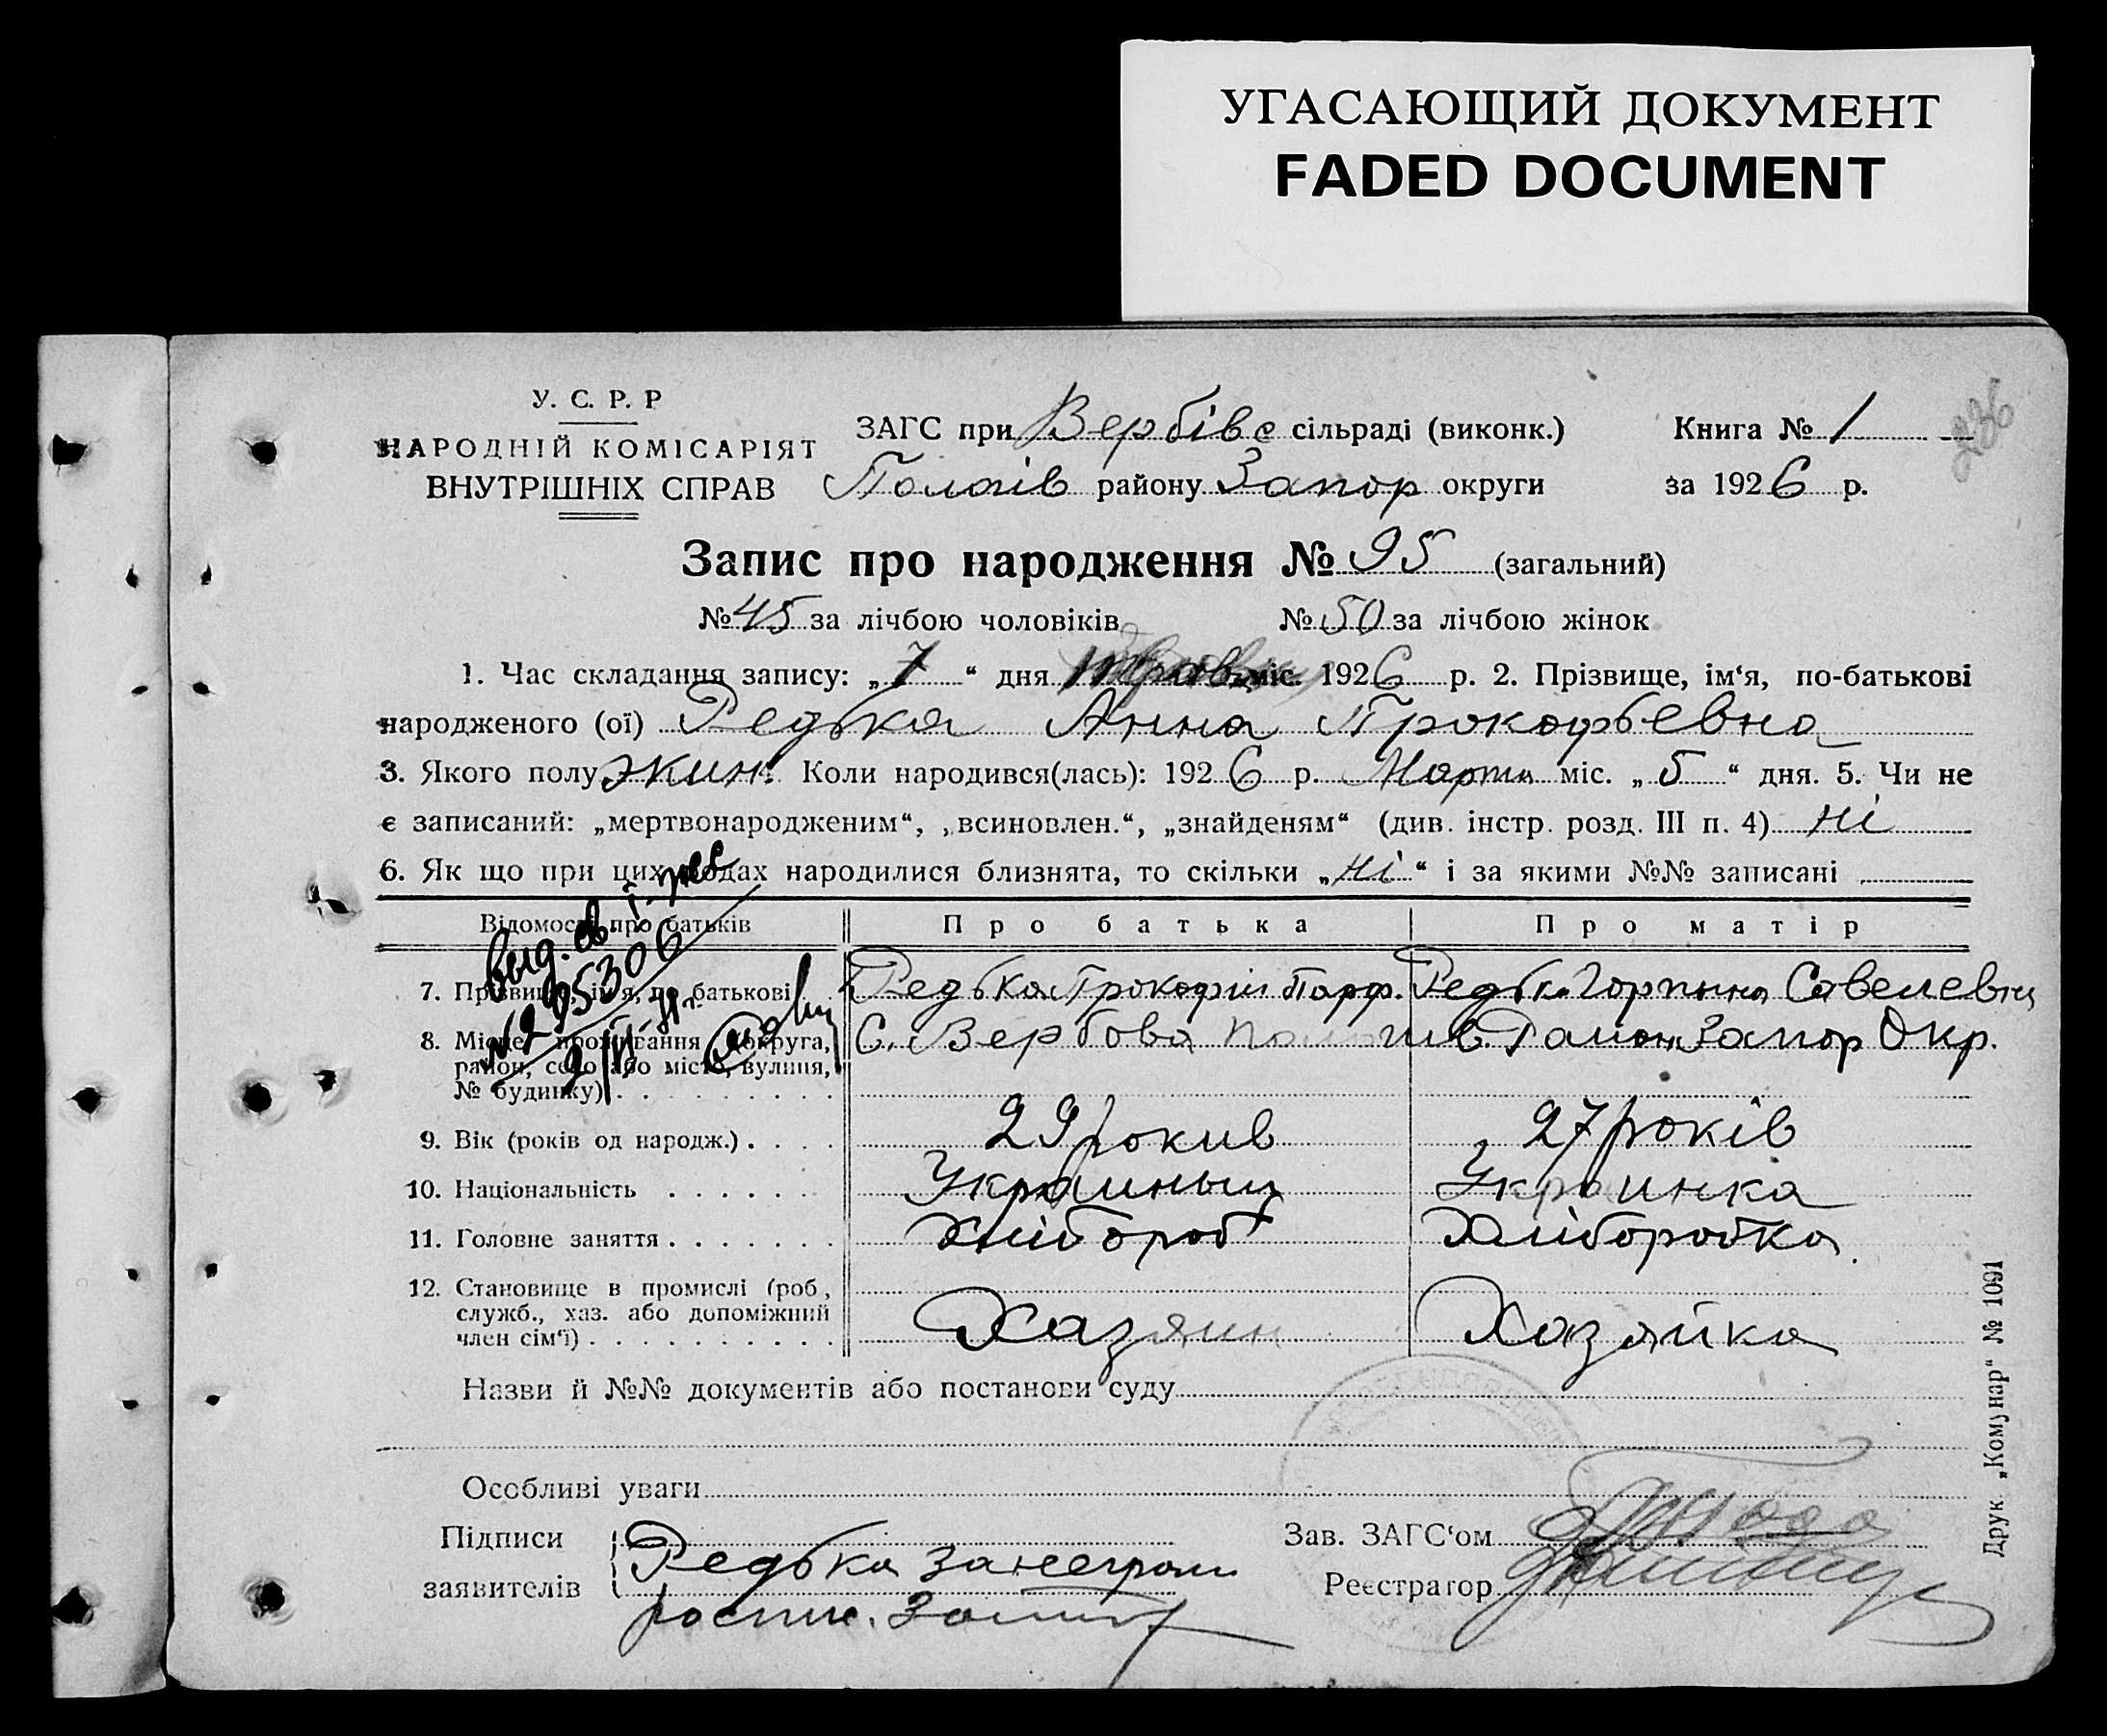 УГАСАЮЩИЙ ДОКУМЕНТ
FADED DOCUMENT
236
У. С. Р. Р
НАРОДНІЙ КОМІСАРІЯТ
ВНУТРІШНІХ СПРАВ
ЗАГС при Вербівс сільраді (виконк.)
Пологів району Запор округи
Книга № 1
за 1926 р.
Запис про народження № 95 (загальний)
№ 45 за лічбою чоловіків № 50 за лічбою жінок
1. Час складання запису: „7“ дня міс. 1926 р. 2. Прізвище, ім‘я, по-батькові
народженого (ої) Редька Анна Прокофьевна
3. Якого полу жин. Коли народився(лась): 1926 р. Марта міс. „5“ дня. 5. Чи не
є записаний: „мертвонародженим“, „всиновлен.“, „знайденям“ (див. інстр. розд. III п. 4) ні
6. Як що при цих родах народилися близнята, то скільки „ні“ і за якими №№ записані
Відомості про батьків Про батька Про матір
7. Прізвище, ім‘я, по батькові Редька Прокофій Парф. Редька Горпына Савелевна
8. Місце проживання (округа, С. Вербова Пологив. Район Запор Окр.
район, село або місто, вулиця,
№ будинку)
9. Вік (років од народж.) 29 рокив 27 років
10. Національність Украиныць Украинка
11. Головне заняття Хлібороб Хліборобка
12. Становище в промислі (роб.,
служб., хаз. або допоміжний
член сім‘ї) Хазяин Хазяйка
Назви й №№ документів або постанови суду
Особливі уваги
Підписи
заявителів
Редька за неграм
роспис.
Зав. ЗАГС‘ом
Реєстратор
Друк. „Комунар“ № 1091